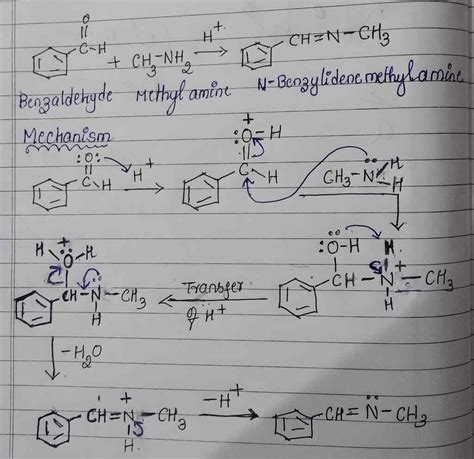 O
C-H + CH₃-NH₂ H⁺ CH=N-CH₃
Benzaldehyde Methyl amine N-Benzylidene methylamine
Mechanism
:O: H⁺ C H
:O⁺-H C H CH₃-N̈ H H
:Ö-H H CH-N⁺-CH₃ H
Transfer of H⁺
H H O⁺ CH-N̈-CH₃ H
-H₂O
CH=N⁺-CH₃ H -H⁺ CH=N̈-CH₃